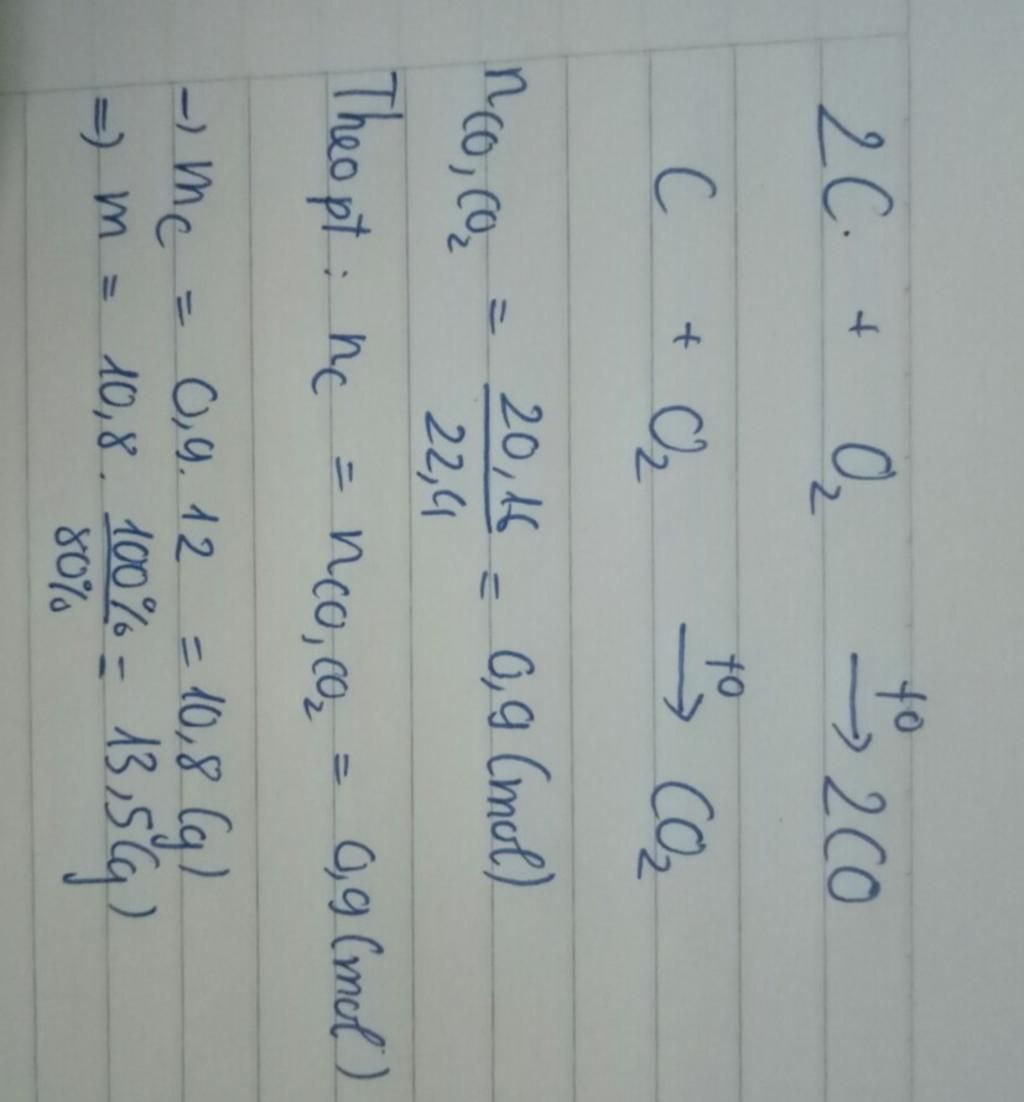 2C. + O₂ —t⁰→ 2CO
C + O₂ —t⁰→ CO₂
n_CO,CO₂ = 20,16 / 22,4 = 0,9 (mol)
Theo pt : n_C = n_CO,CO₂ = 0,9 (mol)
→ m_C = 0,9 . 12 = 10,8 (g)
=> m = 10,8 . 100% / 80% = 13,5 (g)